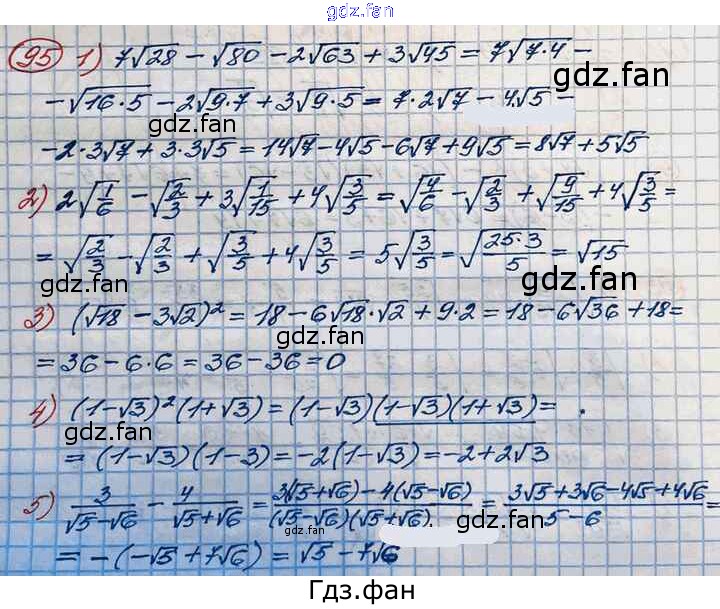 gdz.fan
gdz.fan
95 1) 7√28 − √80 − 2√63 + 3√45 = 7√(7·4) −
− √(16·5) − 2√(9·7) + 3√(9·5) = 7·2√7 − 4√5 −
gdz.fan
gdz.fan
−2·3√7 + 3·3√5 = 14√7 − 4√5 − 6√7 + 9√5 = 8√7 + 5√5
2) 2√(1/6) − √(2/3) + 3√(1/15) + 4√(3/5) = √(4/6) − √(2/3) + √(9/15) + 4√(3/5) =
= √(2/3) − √(2/3) + √(3/5) + 4√(3/5) = 5√(3/5) = √(25·3/5) = √15
gdz.fan
gdz.fan
3) (√18 − 3√2)² = 18 − 6√18·√2 + 9·2 = 18 − 6√36 + 18 =
= 36 − 6·6 = 36 − 36 = 0
4) (1−√3)²(1+√3) = (1−√3)(1−√3)(1+√3) =
gdz.fan
gdz.fan
= (1−√3)(1−3) = −2(1−√3) = −2+2√3
5) 3/(√5−√6) − 4/(√5+√6) = (3(√5+√6)−4(√5−√6))/((√5−√6)(√5+√6)) = (3√5+3√6−4√5+4√6)/(5−6) =
gdz.fan
gdz.fan
= −(−√5+7√6) = √5−7√6
Гдз.фан